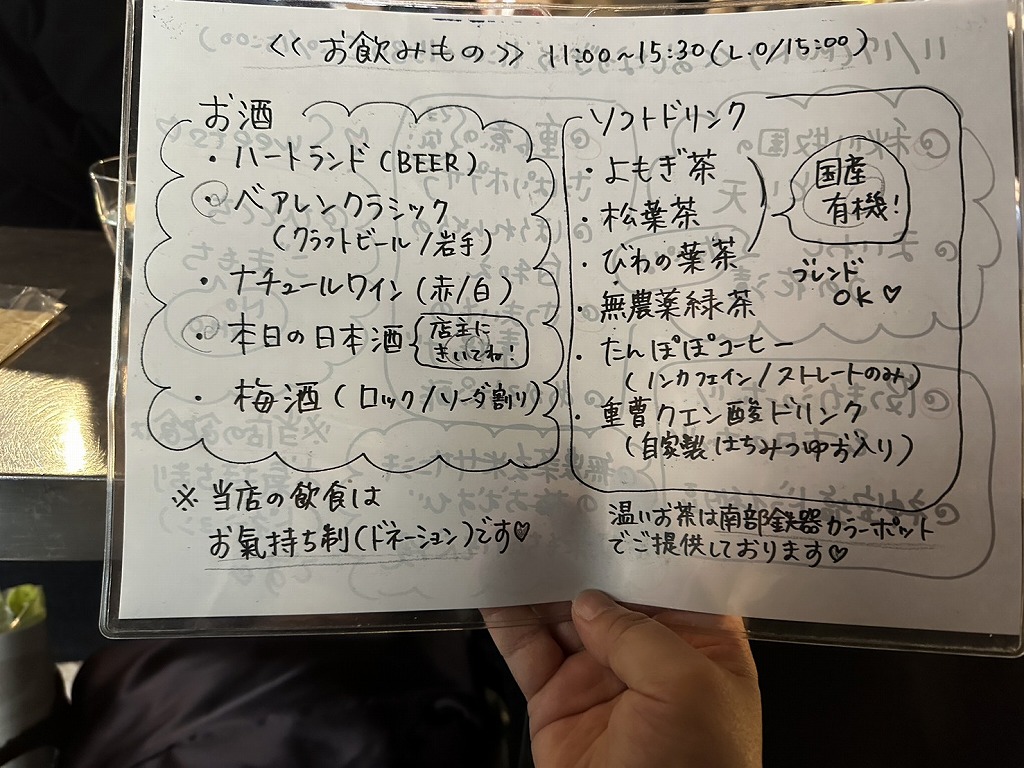 <<お飲みもの>> 11:00~15:30(L.O/15:00)
お酒
・ハートランド(BEER)
・ベアレンクラシック
(クラフトビール/岩手)
・ナチュールワイン(赤/白)
・本日の日本酒
店主に
きいてね!
・梅酒(ロック/ソーダ割り)
※当店の飲食は
お氣持ち制(ドネーション)です♡
ソフトドリンク
・よもぎ茶
・松葉茶
・びわの葉茶
国産
有機!
ブレンド
OK♡
・無農薬緑茶
・たんぽぽコーヒー
(ノンカフェイン/ストレートのみ)
・重曹クエン酸ドリンク
(自家製はちみつゆず入り)
温いお茶は南部鉄器カラーポット
でご提供しております♡